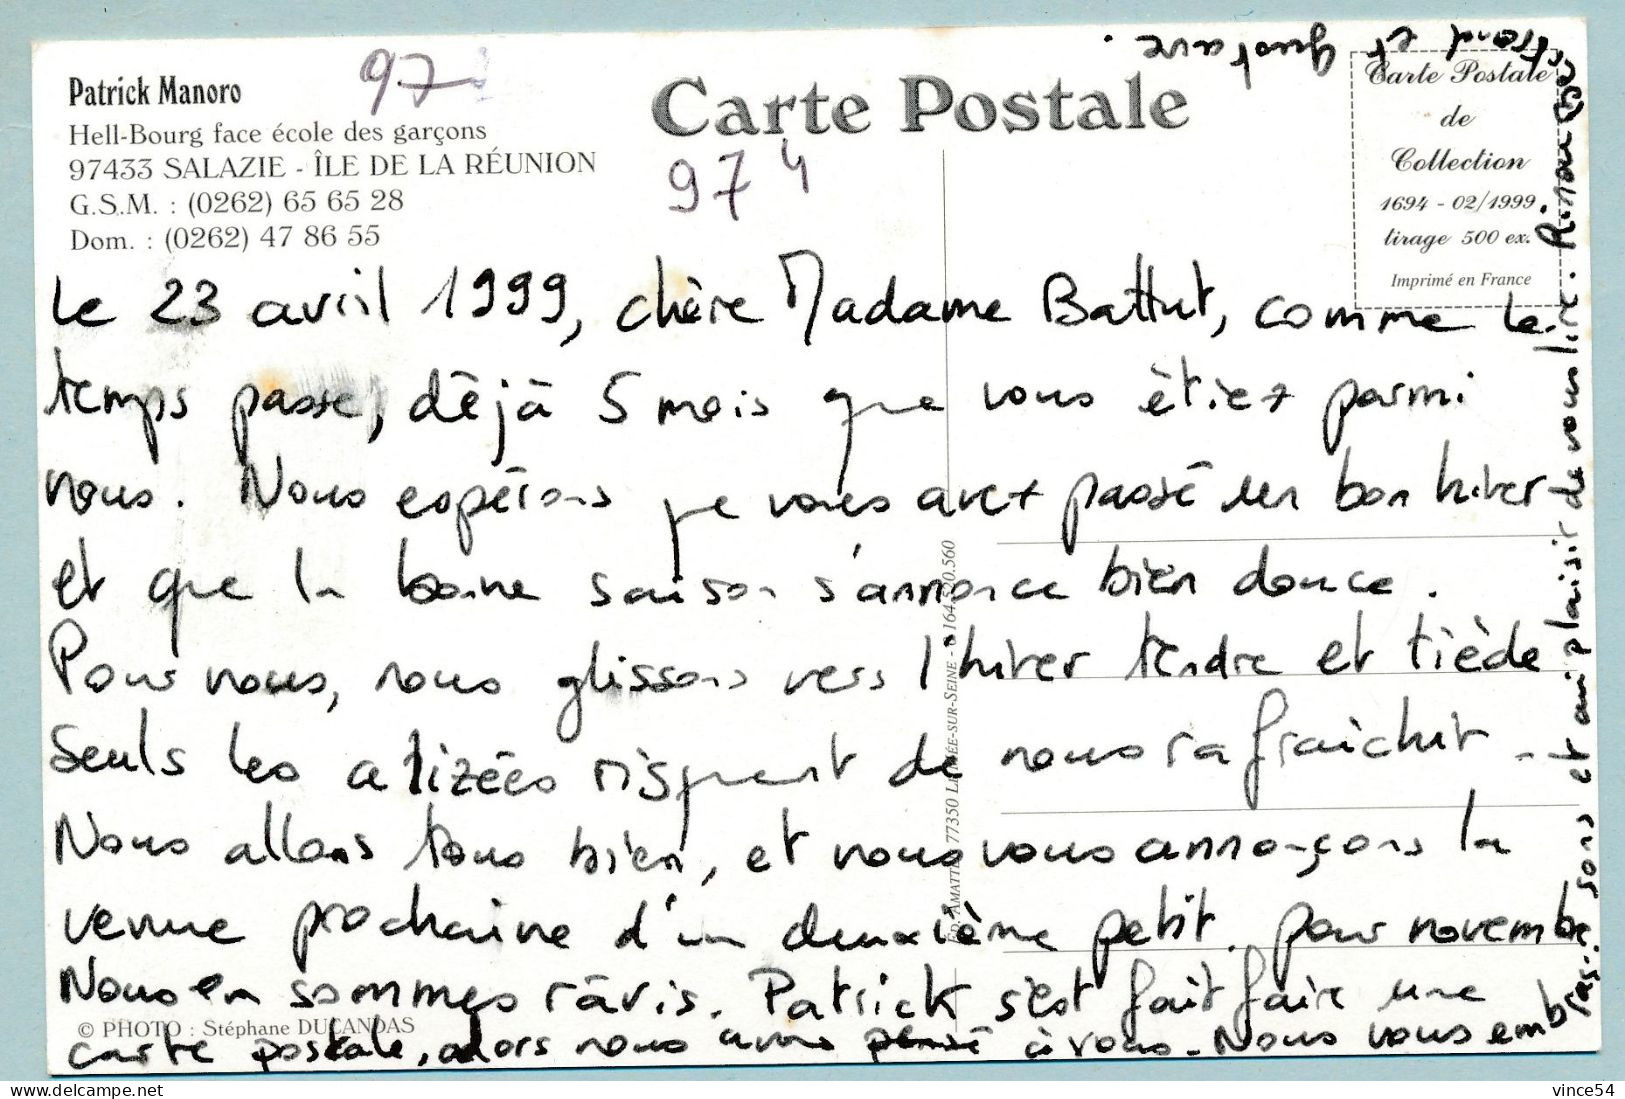 Patrick Manoro
Hell-Bourg face école des garçons
97433 SALAZIE - ÎLE DE LA RÉUNION
G.S.M. : (0262) 65 65 28
Dom. : (0262) 47 86 55
97
Carte Postale
974
Carte Postale
de
Collection
1694 - 02/1999
tirage 500 ex.
Imprimé en France
Le 23 avril 1999, chère Madame Battut, comme le
temps passe, déjà 5 mois que vous êtiez parmi
nous. Nous espérons que vous avez passé un bon hiver
et que la bonne saison s'annonce bien douce.
Pour nous, nous glissons vers l'hiver tendre et tiède
Seuls les alizées risquent de nous rafraichir -
Nous allons tous bien, et nous vous annonçons la
venue prochaine d'un deuxième petit. pour novembre.
Nous en sommes râvis. Patrick s'est fait faire une
carte postale, alors nous avons pensé à vous. Nous vous emb
ras-
sons et au plaisir de vous lire.
et Gustave.
© PHOTO : Stéphane DUCANDAS
77350 LE MÉE-SUR-SEINE -